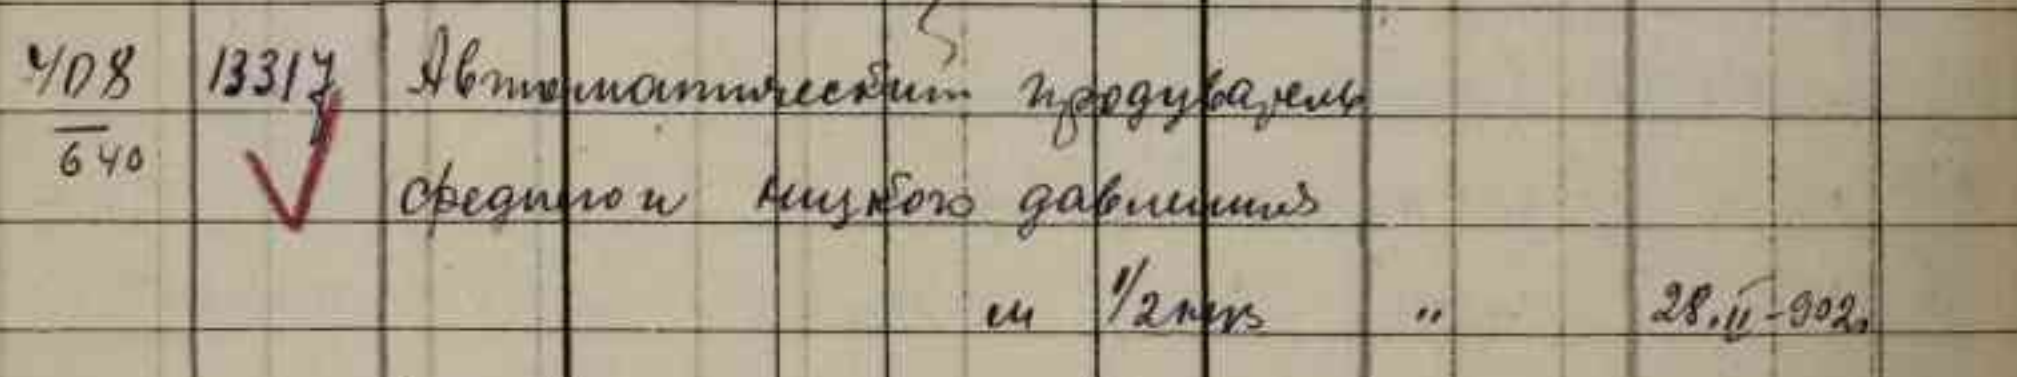 408 13317 Автоматический продуватель
640 среднего и низкого давления
м 1/2 " 28.II-902.